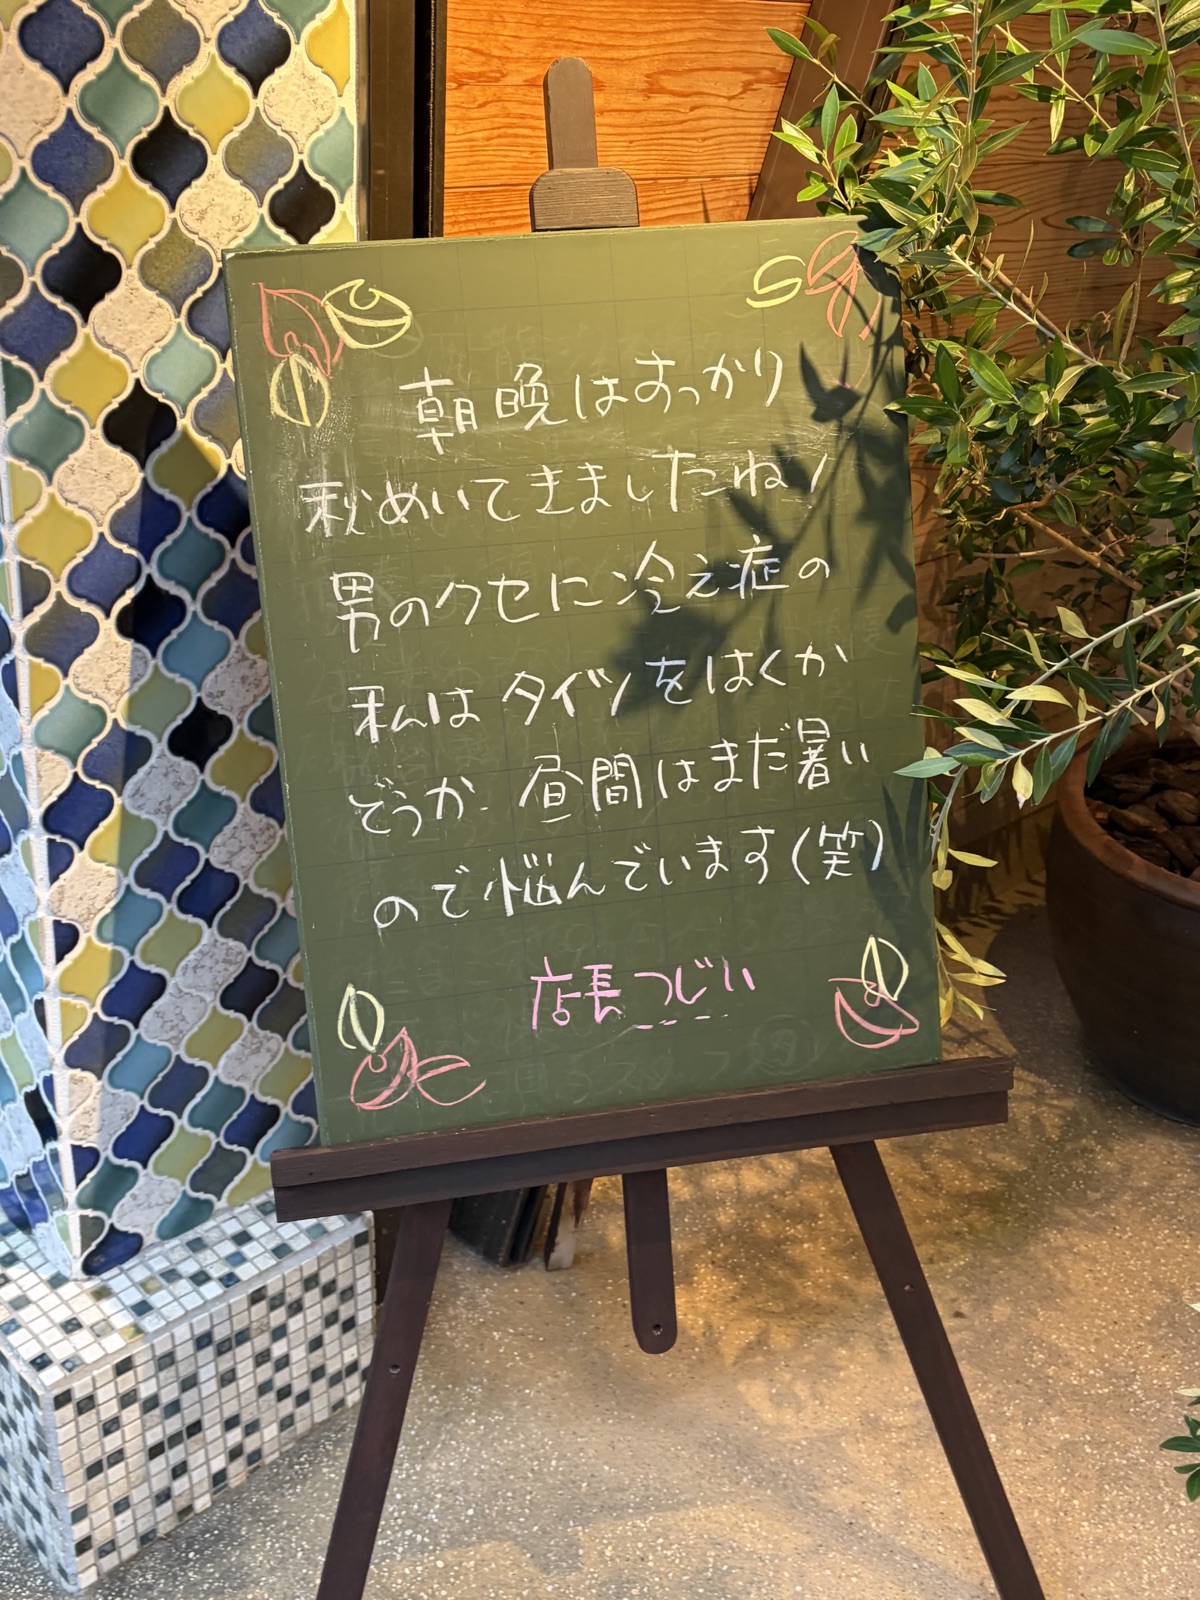 朝晩はすっかり
秋めいてきましたね!
男のクセに冷え症の
私はタイツをはくか
どうか、昼間はまだ暑い
ので悩んでいます(笑)
店長つじい